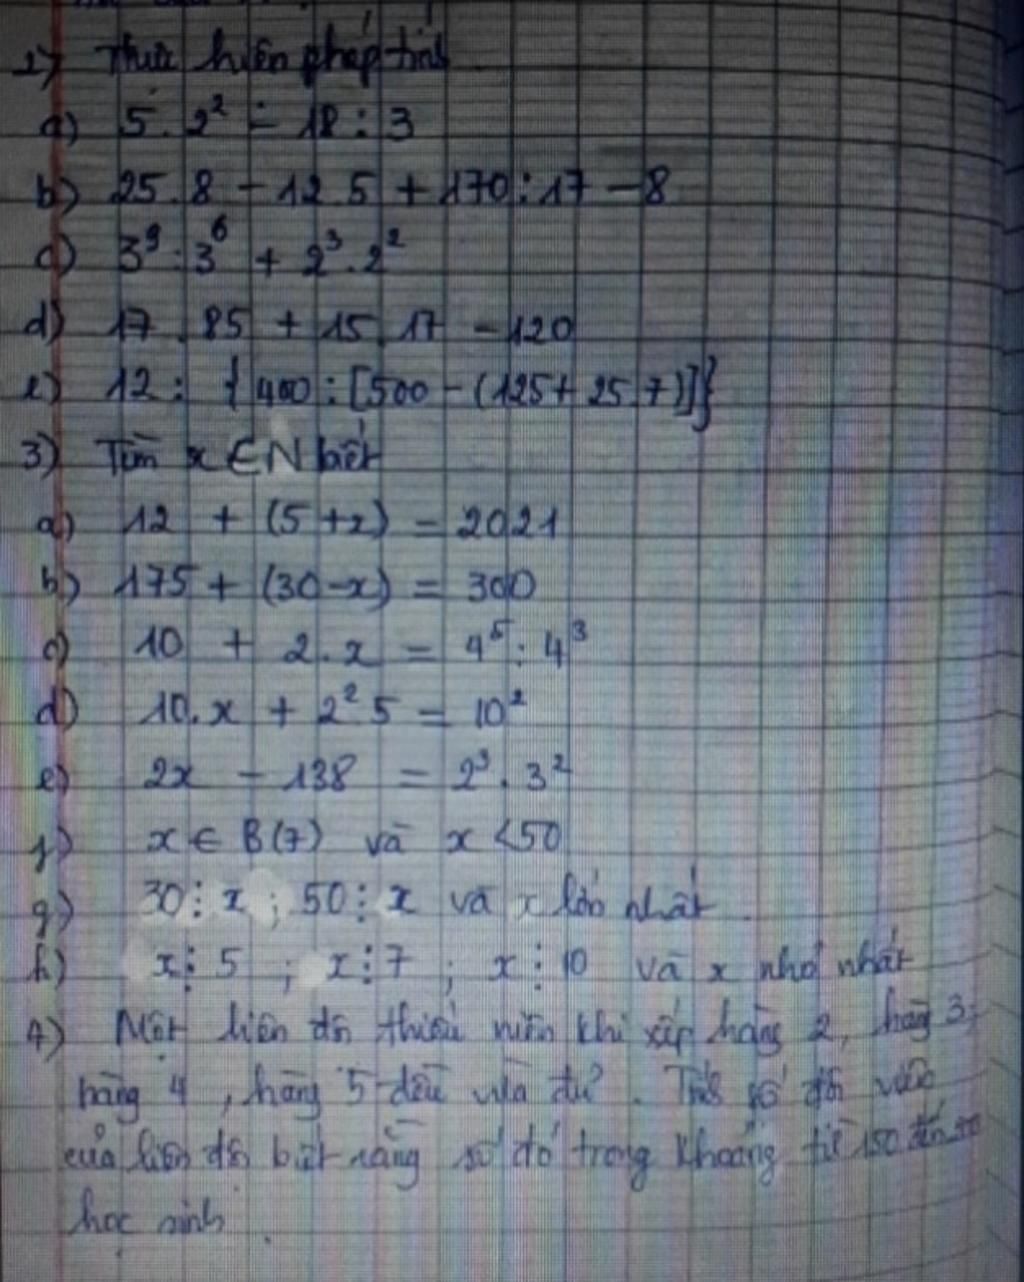 2) Thực hiện phép tính
a) 5. 2² - 18 : 3
b) 25.8 - 12.5 + 170:17 - 8
c) 3⁹ : 3⁶ + 2³ . 2²
d) 17 . 85 + 15.17 - 120
e) 12 : {400 : [500 - (125 + 25.7)]}
3) Tìm x ∈ N biết
a) 12 + (5 + x) = 2021
b) 175 + (30 - x) = 300
c) 10 + 2.x = 4⁵ : 4³
d) 10.x + 2² 5 = 10²
e) 2x - 138 = 2³ . 3²
f) x ∈ B(7) và x < 50
g) 30 ⋮ x ; 50 ⋮ x và x lớn nhất
h) x ⋮ 5 ; x ⋮ 7 ; x ⋮ 10 và x nhỏ nhất
4) Một liên đội thiếu niên khi xếp hàng 2, hàng 3,
hàng 4, hàng 5 đều vừa đủ. Tính số đội viên
của liên đội biết rằng số đó trong khoảng từ 150 đến
học sinh.